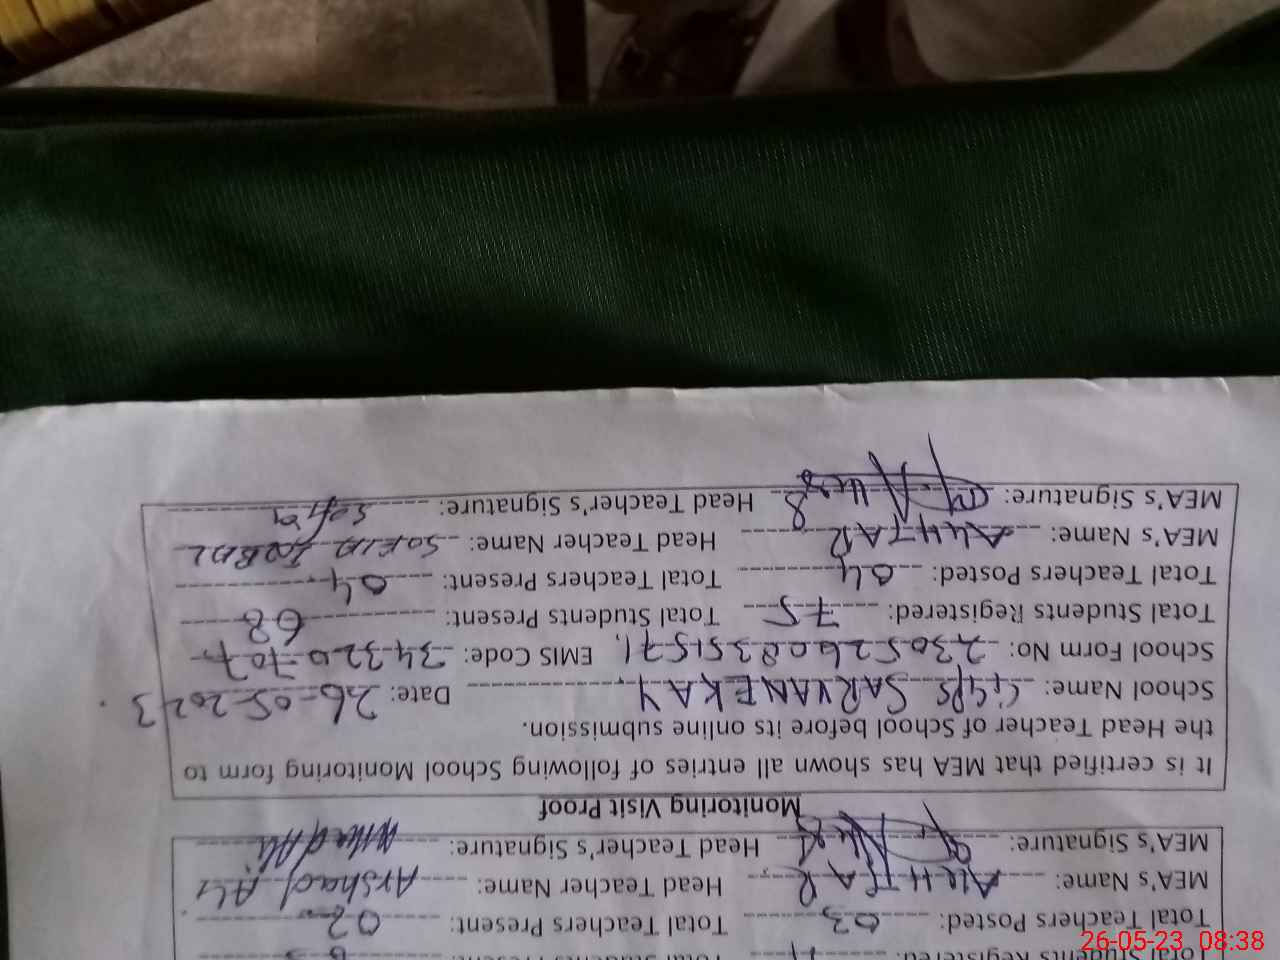 Total Students Registered: Total Students Present:
Total Teachers Posted: 03 Total Teachers Present: 02
MEA's Name: AKHTAR Head Teacher Name: Arshad Ali
MEA's Signature: Head Teacher's Signature:
Monitoring Visit Proof
It is certified that MEA has shown all entries of following of School Monitoring form to
the Head Teacher of School before its online submission.
School Name: GGPS SARVANEKAY Date: 26-05-2023
School Form No: EMIS Code: 34320707
Total Students Registered: 75 Total Students Present: 68
Total Teachers Posted: 04 Total Teachers Present: 04
MEA's Name: AKHTAR Head Teacher Name: SOFIA IQBAL
MEA's Signature: Head Teacher's Signature: Sofia
26-05-23 08:38